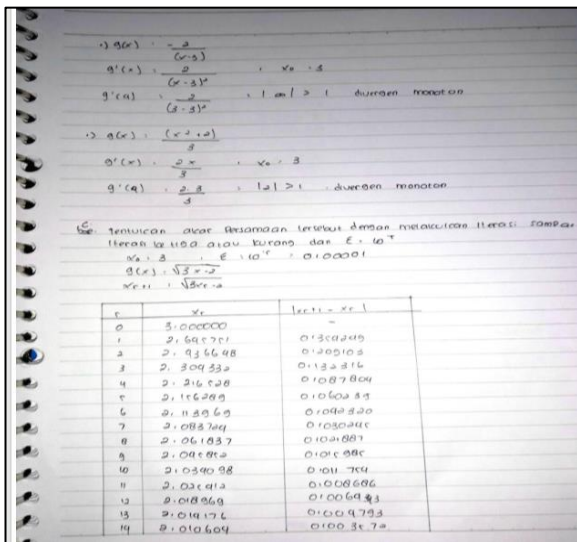 ·) g(x) = -2
(x-3)
g'(x) = 2 , x₀ = 3
(x-3)²
g'(a) = 2 = |∞| > 1 divergen monoton
(3-3)²
·) g(x) = (x²+2)
3
g'(x) = 2x , x₀ = 3
3
g'(a) = 2.3 = |2| > 1 divergen monoton
3
Tentukan akar Persamaan tersebut dengan melakukan Iterasi sampai
Iterasi ke tiga atau kurang dari ε = 10
x₀ = 3 , ε = 10 = 0.00001
g(x) = √3x-2
xr+1 = √3xr-2
r xr |xr+1 - xr|
0 3.000000 -
1 2.645751 0.354249
2 2.436648 0.209103
3 2.304332 0.132316
4 2.216528 0.087804
5 2.156289 0.060239
6 2.113969 0.042320
7 2.083724 0.030245
8 2.061837 0.021887
9 2.045852 0.015985
10 2.034098 0.011754
11 2.025412 0.008686
12 2.018969 0.006443
13 2.014176 0.004793
14 2.010604 0.003572